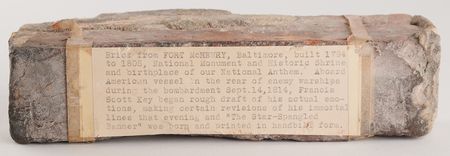 Brick from FORT McHENRY, Baltimore, built 1794
to 1805, National Monument and Historic Shrine
and birthplace of our National Anthem. Aboard
American vessel in the rear of enemy warships
during the bombardment Sept.14,1814, Francis
Scott Key began rough draft of his actual emo-
tions, making certain revisions of his immortal
lines that evening and "The Star-Spangled
Banner" was born and printed in handbill form.